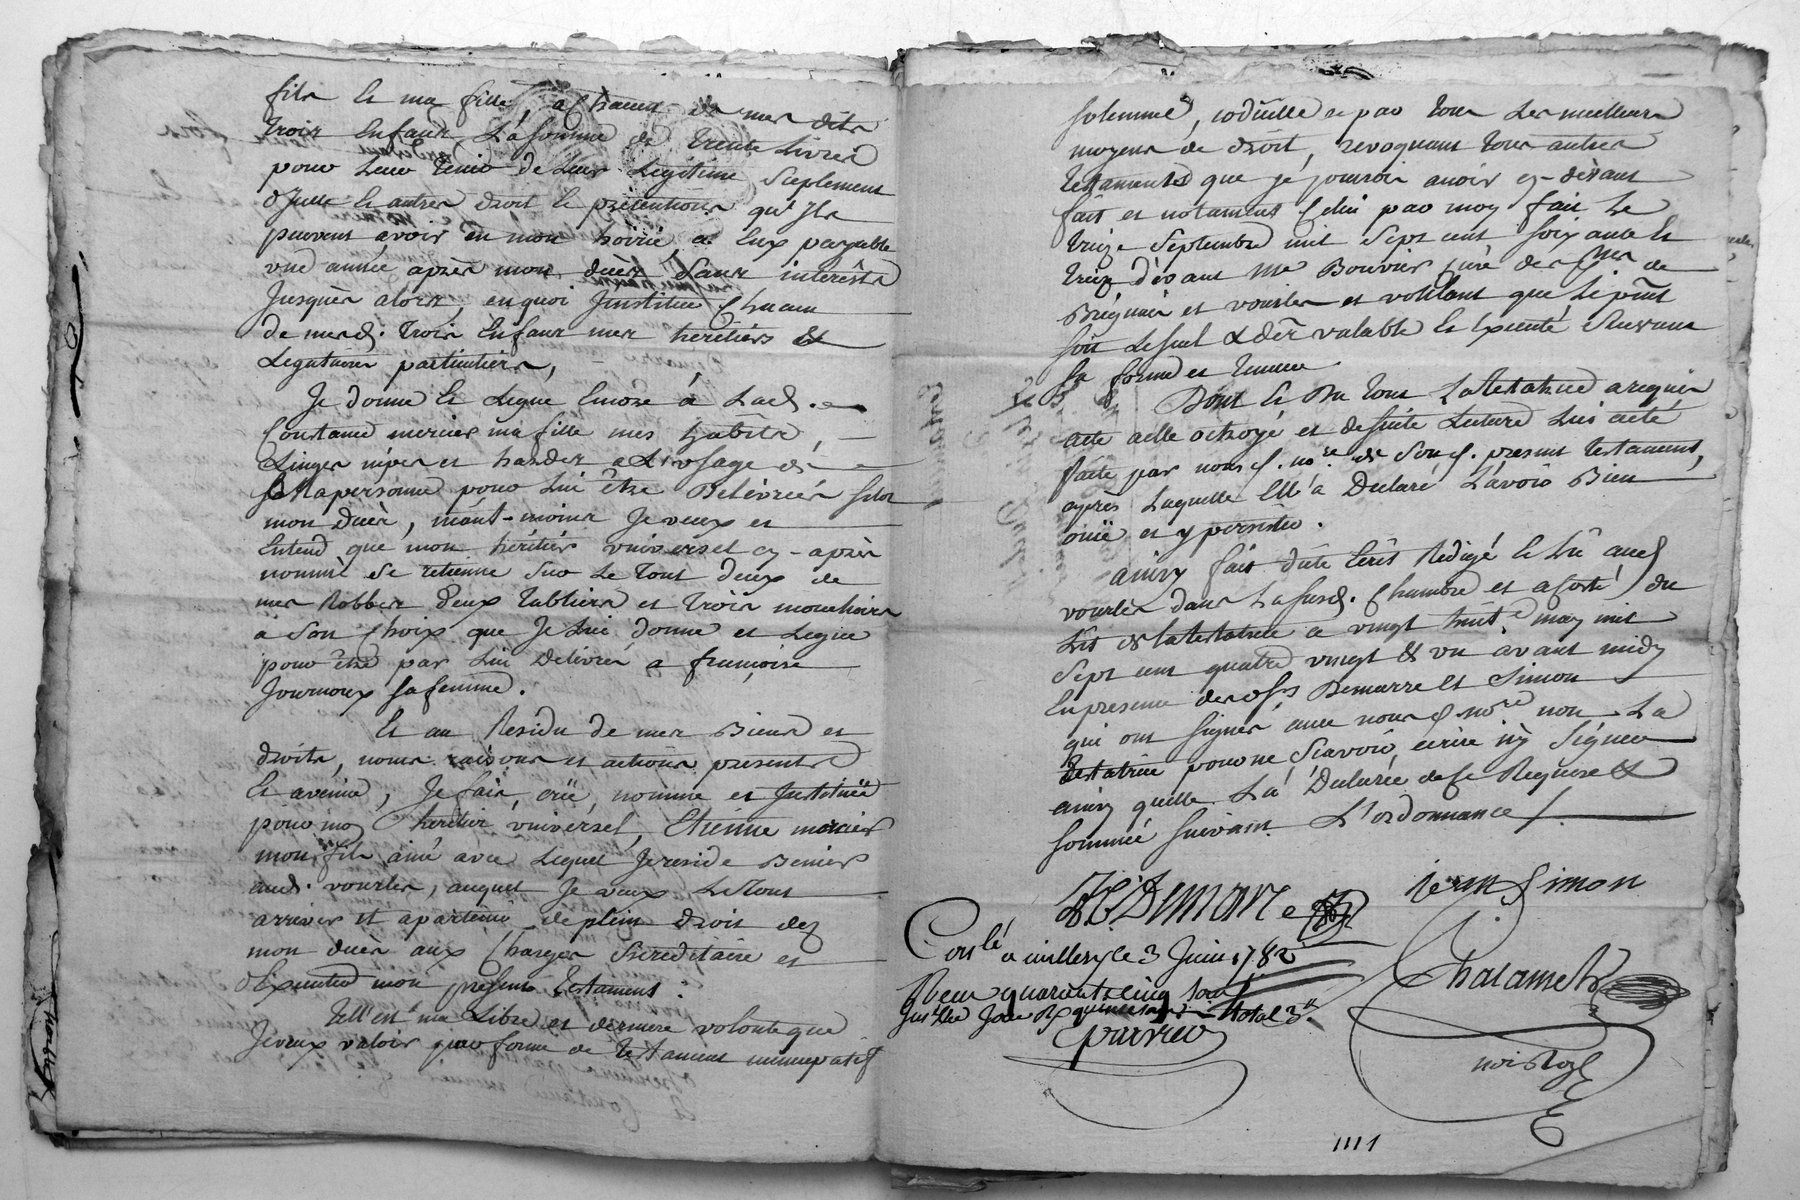 fils et ma fille, a Chacun de mes dits
trois Enfans La somme de trente Livres
pour Leur tenir de Leur Legitime Suplement
d'jcelle et autres droit et prétentions qu'Ils
peuvent avoir en mon hoirie a Eux payable
une année après mon decès sans interêsts
Jusques alors, en quoi Jnstitue Chacun
de mesd. trois Enfans mes heritiers et
Legataires particuliers,
Je donne et Legue Encore á Lad.
Constance mercier ma fille mes habits,
Linges nipes et hardes a L'usage de
ma personne pour Lui être Delivrées selon
mon decès, néant-moins Je veux et
Entend que mon héritier universel cy-après
nommé se retienne sur Le tout deux de
mes Robbes deux tabliers et trois mouchoirs
a son Choix que Je Lui donne et Legue
pour être par Lui Delivrés a françoise
Journoux sa femme.
Et au Residu de mes Biens et
droits, noms raisons et actions presents
Et avenir, Je fais, créé, nomme et Jnstituë
pour mon heritier universel, Etienne mercier
mon fils ainé avec Lequel Je reside
aud. vourles, auquel Je veux Le tout
arriver et apartenir de plein droit dez
mon decès aux Charges hereditaire et
d'Executer mon présent testament.
Tell'est ma Libre et derniere volonte que
Je veux valoir par forme de testament nuncupatif
solemnel, codicille et par tous Les meilleurs
moyens de droit, revoquant tous autres
testaments que je pourrois avoir cy-devant
fait et notament Celui par moy fait Le
treize Septembre mil Sept cent soixante et
treize devant Me Bouvier
Brignais et vourles et voulant que Le pñt
soit Le seul valable et Executé Suivant
sa forme et teneur
Dont et Du tout La testatrice a requis
acte a elle octroyé et de suite Lecture Lui a été
faite par nous d. nore. de Son d. present testament,
après Laquelle Ell'a Declaré L'avoir Bien
ouïe et y persister.
ainsy fait dicté Ecrit Redigé et Lû aud.
vourles dans La susd. Chambre et a Costé du
Lit de la testatrice ce vingt huit may mil
Sept cent quatre vingt et un avant midy
En presence des srs Demarre et Simon
qui ont Signés avec nous d. nore non La
testatrice pour ne Scavoir ecrire ny Signer
ainsy quelle L'a Declarée de ce Requise et
sommée Suivant L'ordonnance /.
Demare
jean Simon
Conlé a millery le 3 Juin 1782
Receu quarante cinq sous
total 3
Chalamel
noi Roy
1111